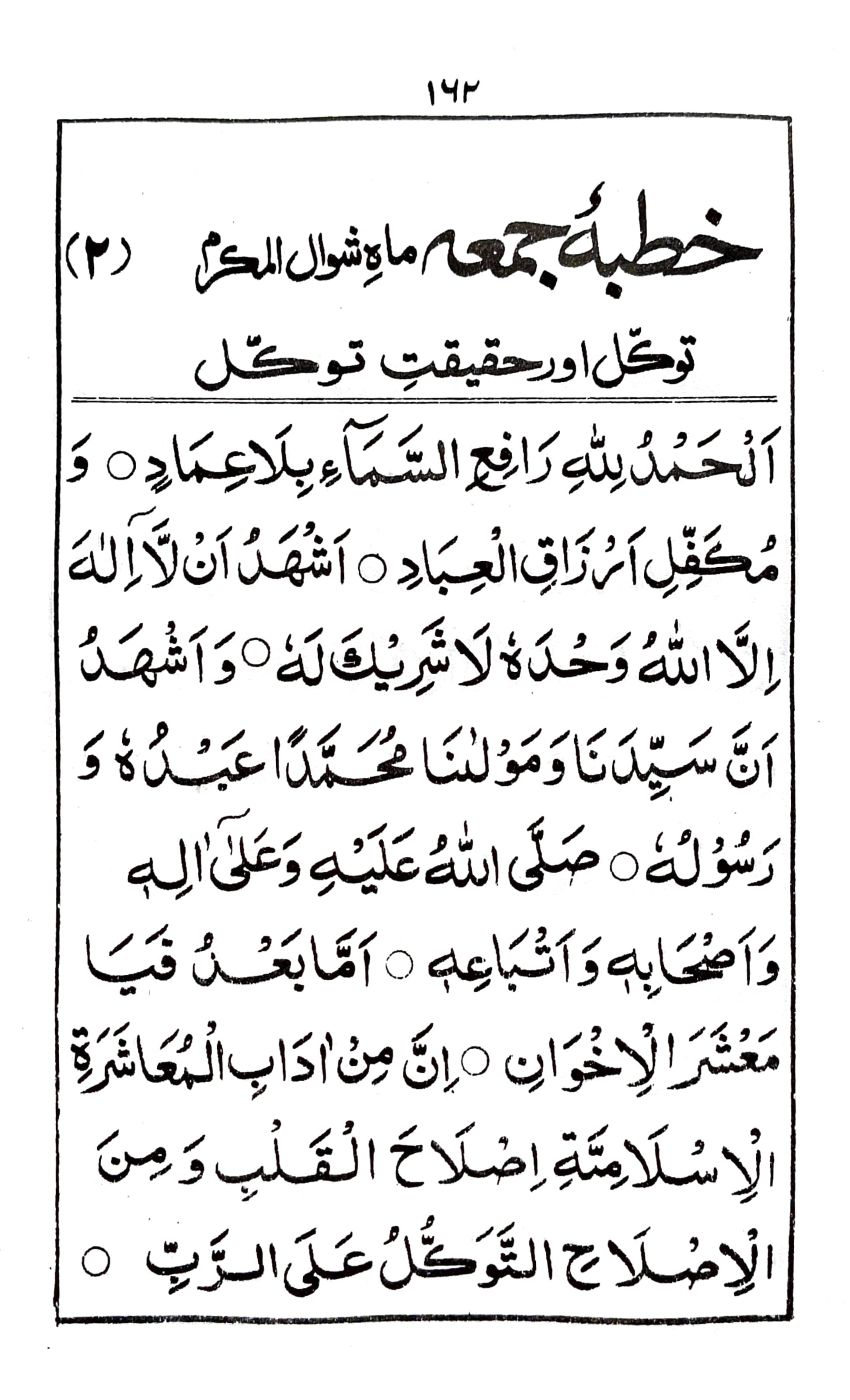 ۱۶۲
خطبۂ جمعہ ماہِ شوال المکرم (۲)
توکّل اور حقیقتِ توکّل
اَلْحَمْدُ لِلّٰهِ رَافِعِ السَّمَآءِ بِلَا عِمَادٍ ○ وَ
مُكَفِّلِ اَرْزَاقِ الْعِبَادِ ○ اَشْهَدُ اَنْ لَّآ اِلٰهَ
اِلَّا اللّٰهُ وَحْدَهٗ لَا شَرِيْكَ لَهٗ ○ وَ اَشْهَدُ
اَنَّ سَيِّدَنَا وَمَوْلٰنَا مُحَمَّدًا عَبْدُهٗ وَ
رَسُوْلُهٗ ○ صَلَّى اللّٰهُ عَلَيْهِ وَعَلٰٓى اٰلِهٖ
وَاَصْحَابِهٖ وَ اَتْبَاعِهٖ ○ اَمَّا بَعْدُ فَيَا
مَعْشَرَ الْاِخْوَانِ ○ اِنَّ مِنْ اٰدَابِ الْمُعَاشَرَةِ
الْاِسْلَامِيَّةِ اِصْلَاحَ الْقَلْبِ وَ مِنَ
الْاِصْلَاحِ التَّوَكُّلُ عَلَى الرَّبِّ ○